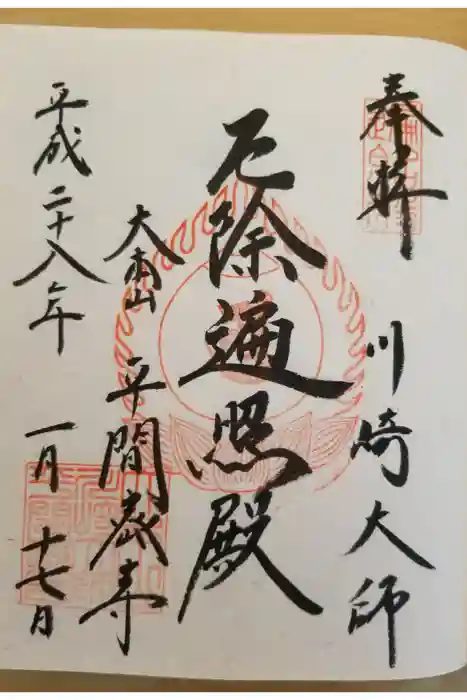 奉拝
川崎大師
厄除遍照殿
大本山
平間寺
平成二十八年
一月
十七日